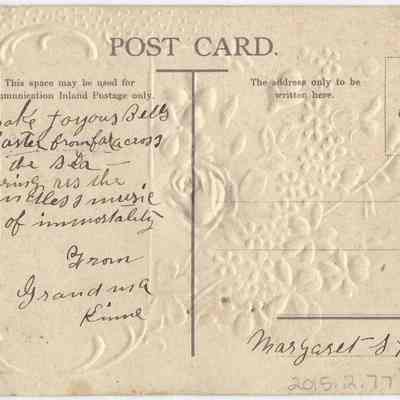 POST CARD.
This space may be used for
mmunication Inland Postage only.
The address only to be
written here.
Joyous Bells
Easter from far across
the sea —
us the
music
of immortality
From
Grandma
Kinne
Margaret S
2015.2.77